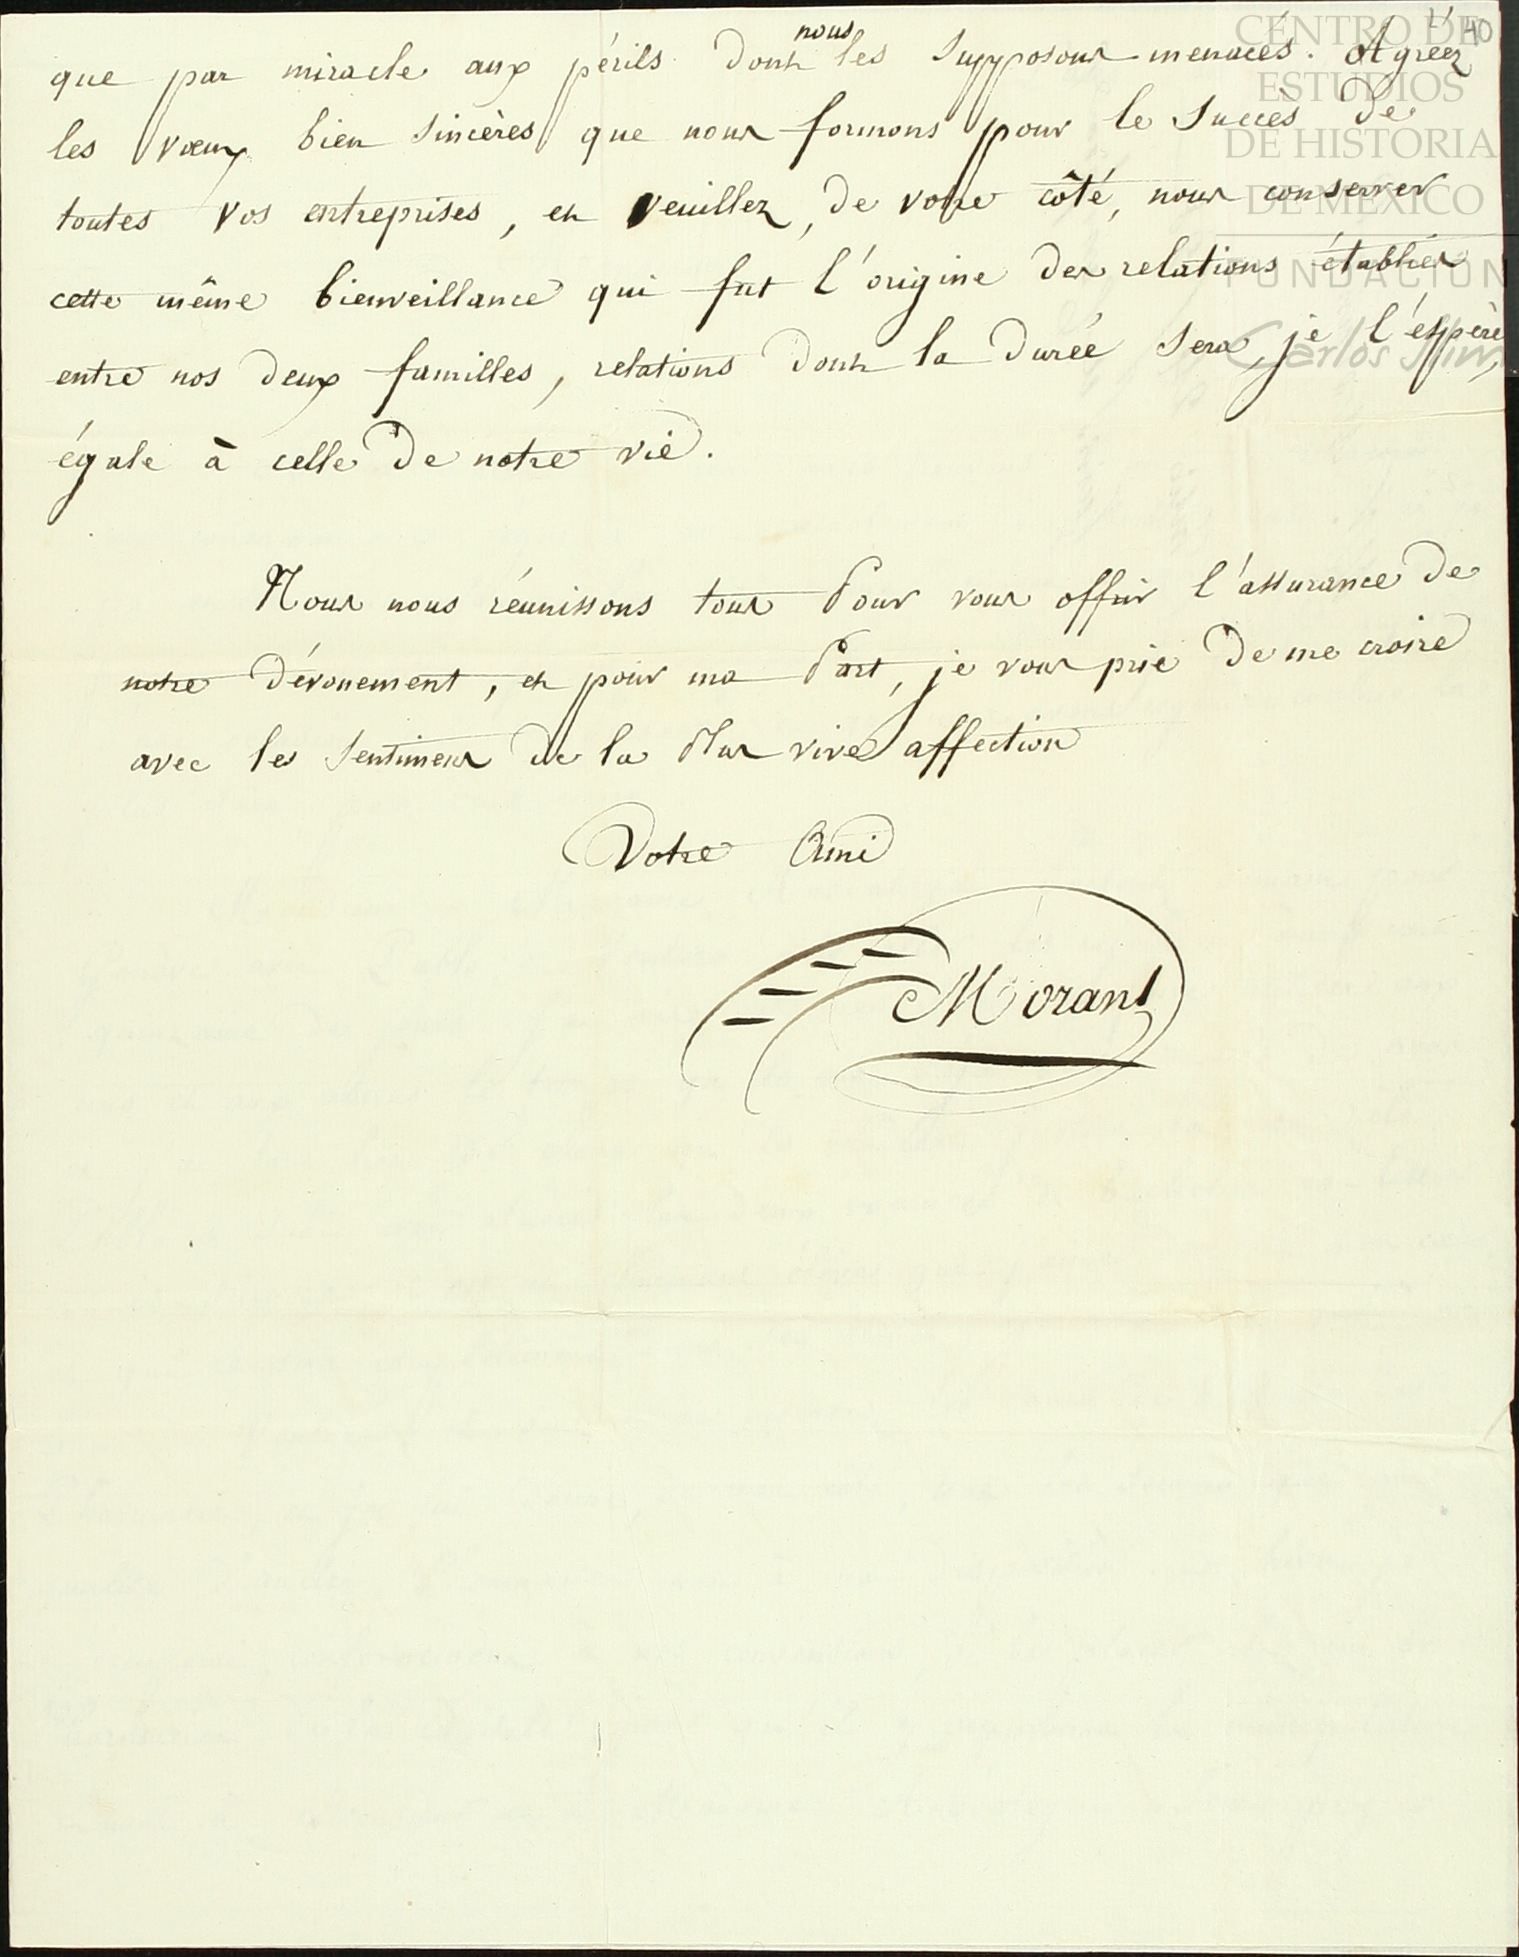 40
nous
que par miracle aux périls dont les supposons menacés. Agréez
les vœux bien sincères que nous formons pour le succès de
toutes vos entreprises, et veuillez, de votre côté, nous conserver
cette même bienveillance qui fut l'origine des relations établies
entre nos deux familles, relations dont la durée sera, je l'espère,
égale à celle de notre vie.
Nous nous réunissons tous Pour vous offrir l'assurance de
notre dévouement, et pour ma Part, je vous prie de me croire
avec les sentimens de la Plus vive affection
Votre Ami
Morant
CENTRO DE
ESTUDIOS
DE HISTORIA
DE MÉXICO
FUNDACIÓN
Carlos Slim